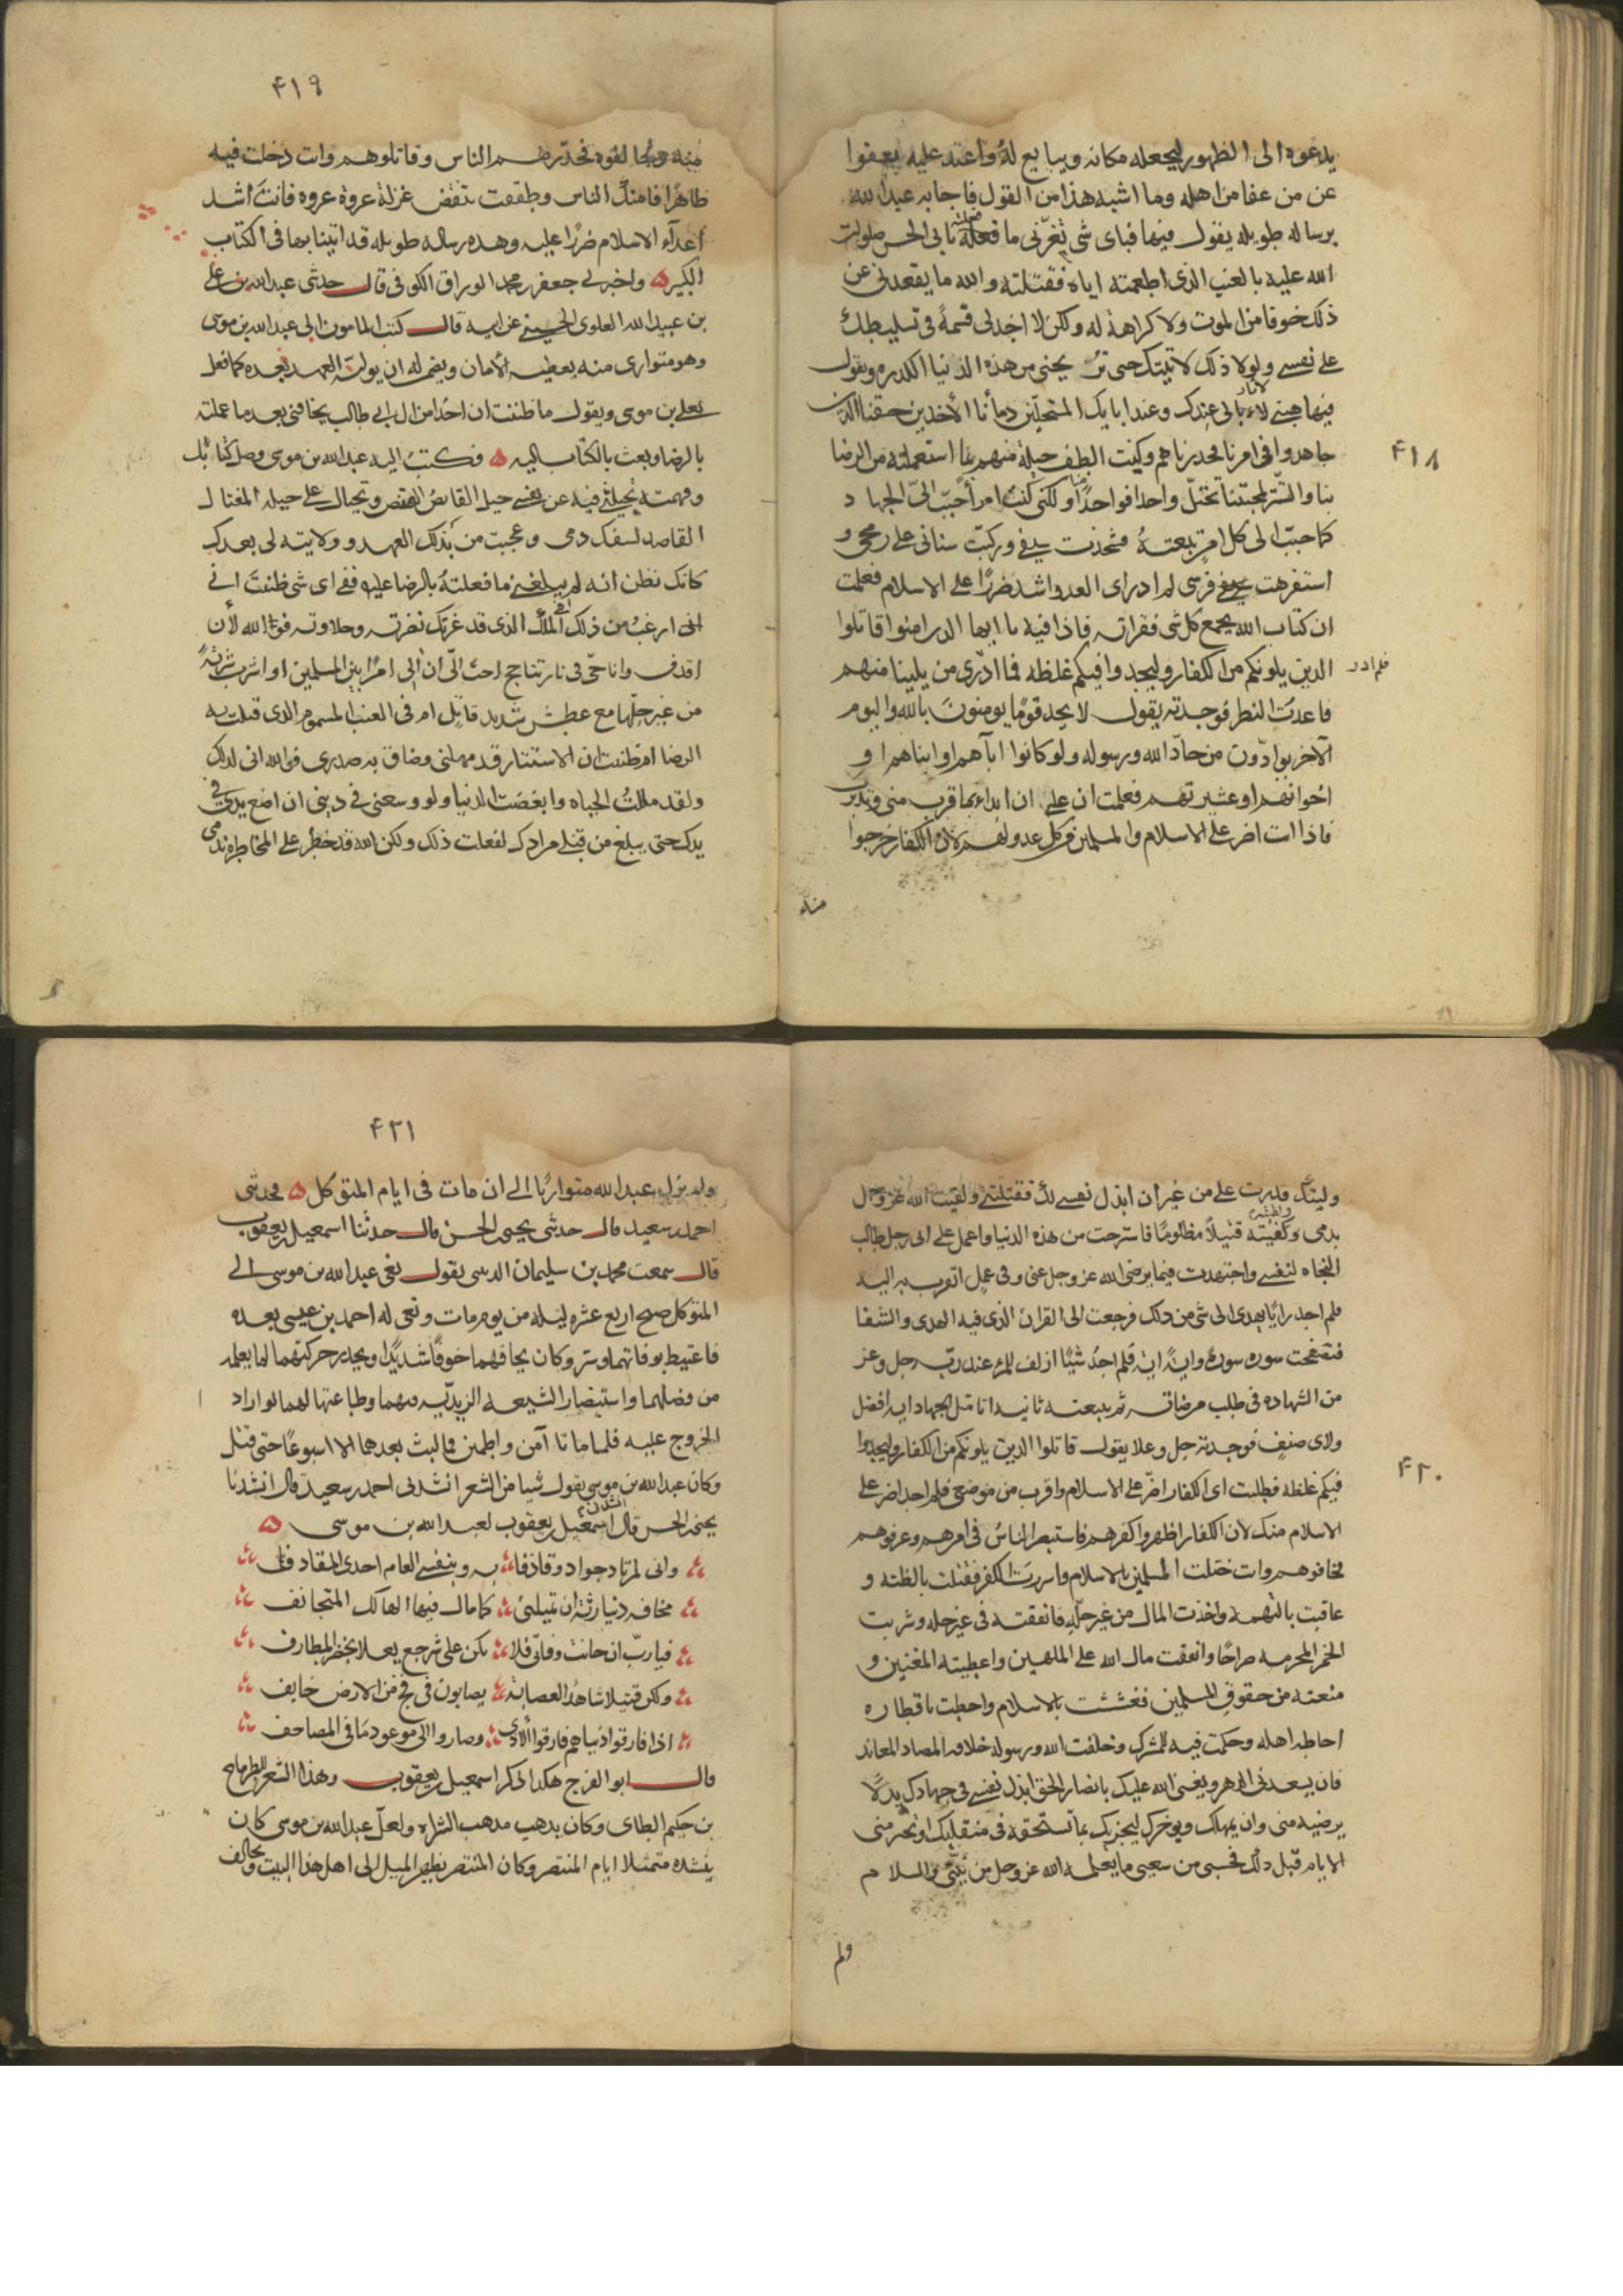 يدعوه الى الظهور ليجعله مكانه ويبايع له واعتد عليه بعفوا
عن من عفا من اهله وما اشبه هذا من القول فاجابه عبد الله
برساله طويله يقول فيها فباى شى تغرنى ما فعلته بابى الحسن صلوات
الله عليه بالعنب الذى اطعمته اياه فقتلته والله ما يقعدنى عن
ذلك خوفا من الموت ولا كراهة له ولكن لا اجد لى فسحة فى تسليطك
على نفسى ولولا ذلك لاتيتك حتى تريحنى من هذه الدنيا الكدره ويقول
فيها هبنى لا ثار لى عندك وعند ابايك المستحلين دمأنا الأخذين حقنا الذين
جاهدوا فى امرنا فحدرناهم وكنت الطف حيلة منهم بما استعملته من الرضا
بنا والتستر لمحبتنا تختل واحدا فواحدًا ولكنى كنت امرأ حبّب الىّ الجهاد
كما حبّب الى كل امرٍ بغيته فشحذت سيفى وركبت سنانى على رمحى و
استفرهت فرسى لم ادر اى العدو اشد ضررًا على الاسلام فعلمت
ان كتاب الله يجمع كل شى فقراته فاذا فيه يا ايها الذين امنوا قاتلوا
الذين يلونكم من الكفار وليجدوا فيكم غلظه فما ادرى من يلينا منهم
فلم ادر
فاعدت النظر فوجدته يقول لا يجد قومًا يومنون بالله واليوم
الآخر يوادّون من حادّ الله ورسوله ولو كانوا اباهم او ابناهم او
اخوانهم او عشيرتهم فعلمت ان على ان ابداء بما قرب منى وتدبرت
فاذا انت اضر على الاسلام والمسلمين من كل عدو لهم لان الكفار خرجوا
منه
٤١٨
٤١٩
منه وخالفوه فحذرهم الناس وقاتلوهم وانت دخلت فيه
ظاهرًا فامنك الناس وطفقت تنقض عزلة عروة عروه فانت اشد
اعدآء الاسلام ضررًا عليه وهذه رساله طويله قد اتينا بها فى الكتاب
الكبير ه واخبرنى جعفر بن محمد الوراق الكوفى قال حدثنى عبد الله بن على
بن عبيد الله العلوى الحسينى عن ابيه قال كتب المامون الى عبد الله بن موسى
وهو متوارى منه يعطيه الأمان ويضمن له ان يوليّه العهد بعده كما فعل
بعلى بن موسى ويقول ما ظننت ان احدًا من ال ابى طالب يخافنى بعد ما عملته
بالرضا وبعث بالكتاب اليه ه فكتب اليه عبد الله بن موسى وصل كتابك
وفهمته تختلنى فيه عن نفسى حيل القانص القنص وتحتال على حيله المغتال
القاصد لسفك دمى وعجبت من بذلك العهد وولايته لى بعدك
كانك تظن انه لم يبلغنى ما فعلته بالرضا عليه ففى اى شى ظننت انى
ارغب من ذلك أفى الملك الذى قد غرتك نضرته وحلاوته فوالله لأن
اقذف وانا حىّ فى نار تتاجج احب الىّ ان الى امرًا بين المسلمين او اشرب شربةً
من غير حلها مع عطش شديد قاتل ام فى العنب المسموم الذى قتلت به
الرضا ام ظننت ان الاستتار قد مهلنى وضاق به صدرى فوالله انى لذلك
ولقد مللت الحياه وابغضت الدنيا ولو وسعنى فى دينى ان اضع يدى فى
يدك حتى يبلغ من قبلى مرادك لفعلت ذلك ولكن الله قد خطر على المخاطره بدمى
وليتك قدرت على من غير ان ابذل نفسى لك فقتلتنى ولقيت الله عز وجل
بدمى ولقيته قتيلاً مظلومًا فاسترحت من هذه الدنيا واعمل على انى رجل طالب
النجاه لنفسى واجتهدت فيما يرضى الله عز وجل عنى وفى عمل اتقرب به اليه
فلم اجد رايًا يهدى الى شى من ذلك فرجعت الى القران الذى فيه الهدى والشفا
فتصفحت سوره سورة وايةً ايه فلم اجد شيئًا ازلف للمرء عند ربّه جل وعز
من الشهاده فى طلب مرضاته ثم تتبعته ثانيه اتامل الجهاد ايه افضل
ولاى صنفٍ فوجدته جل وعلا يقول قاتلوا الذين يلونكم من الكفار وليجدوا
فيكم غلظه فطلبت اى الكفار اضرّ على الاسلام واقرب من موضعى فلم اجد اضر على
الاسلام منك لان الكفار اظهروا كفرهم فاستبصر الناس فى امرهم وعرفوهم
فخافوهم وانت ختلت المسلمين بالاسلام واسررت الكفر فقتلت بالظنه و
عاقبت بالتهمه واخذت المال من غير حلّه فانفقته فى غير حله وشربت
الخمر المحرمه صراحًا وانفقت مال الله على الملهين واعطيته المغنين و
منعته من حقوق المسلمين فغششت بالاسلام واحطت باقطاره
احاطه اهله وحكمت فيه للمشرك وخلفت الله ورسوله خلافه المضاد المعاند
فان يسعدنى الدهر ويعنى الله عليك بانصار الحق ابذل نفسى فى جهادك بدلًا
يرضيه منى وان يمهلك ويوخرك ليجزيك بما تستحقه فى منقلبك او تخترمنى
الايام قبل ذلك فحسبى من سعيى ما يعلمه الله عز وجل من نيتى والسلام
ولم
٤٢٠
٤٢١
ولم يزل عبد الله متواريًا الى ان مات فى ايام المتوكل ه فحدثنى
احمد بن سعيد قال حدثنى يحيى بن الحسن قال حدثنا اسمعيل بن يعقوب
قال سمعت محمد بن سليمان الزينبى يقول نعى عبد الله بن موسى الى
المتوكل صبح اربع عشره ليله من يوم مات ونعى له احمد بن عيسى بعده
فاغتبط بوفاتهما وسر وكان يخافهما خوفًا شديدًا ويحذر حركتهما لما يعلمه
من فضلهما واستبصار الشيعه الزيديّه بهما وطاعتها لهما لو اراد
الخروج عليه فلما ماتا آمن واطمئن فما لبث بعدهما الا اسبوعًا حتى قتل
وكان عبد الله بن موسى يقول شيا من الشعر انشدنى احمد بن سعيد قال انشدنا
يحيى بن الحسن قال انشدنى اسمعيل بن يعقوب لعبد الله بن موسى ه
وانى لمرتاد جوادى وقاذفا به وبنفسى العام احدى المقاذف
مخافه دنيا رثة ان تميلنى كما مال فيها الهالك المتجانف
فيا ربّ ان حانت وفاتى فلا تكن على شرجع يعلا بخضر المطارف
ولكن قتيلا شاهدًا لعصابة يصابون فى فج من الارض خايف
اذا فارقوا دنياهم فارقوا الاذى وصاروا الى موعود ما فى المصاحف
قال ابو الفرج هكذا ذكر اسمعيل بن يعقوب وهذا الشعر للطرماح
بن حكيم الطاى وكان يذهب مذهب الشراه ولعل عبد الله بن موسى كان
ينشده متمثلا ايام المنتصر وكان المنتصر يظهر الميل الى اهل هذا البيت ويخالف